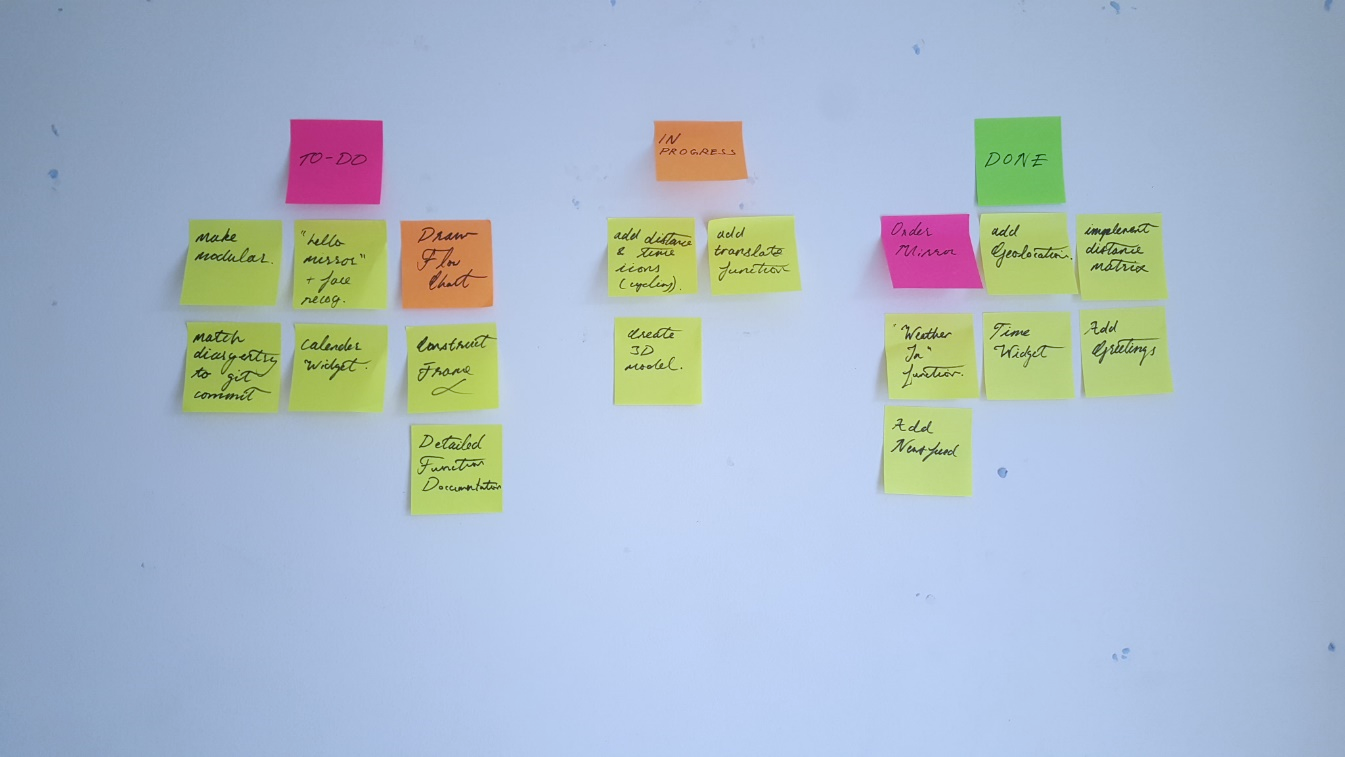 TO-DO
make
modular.
"hello
mirror"
+ face
recog.
Draw
Flow
Chart
match
diary entry
to git
commit
Calender
Widget.
Construct
Frame
Detailed
Function
Documentation
IN
PROGRESS
add distance
& time
icons
(cycling).
add
translate
function
create
3D
model.
DONE
Order
Mirror
add
Geolocation.
implement
distance
matrix
"Weather
In"
function.
Time
Widget
Add
Greetings
Add
Newsfeed